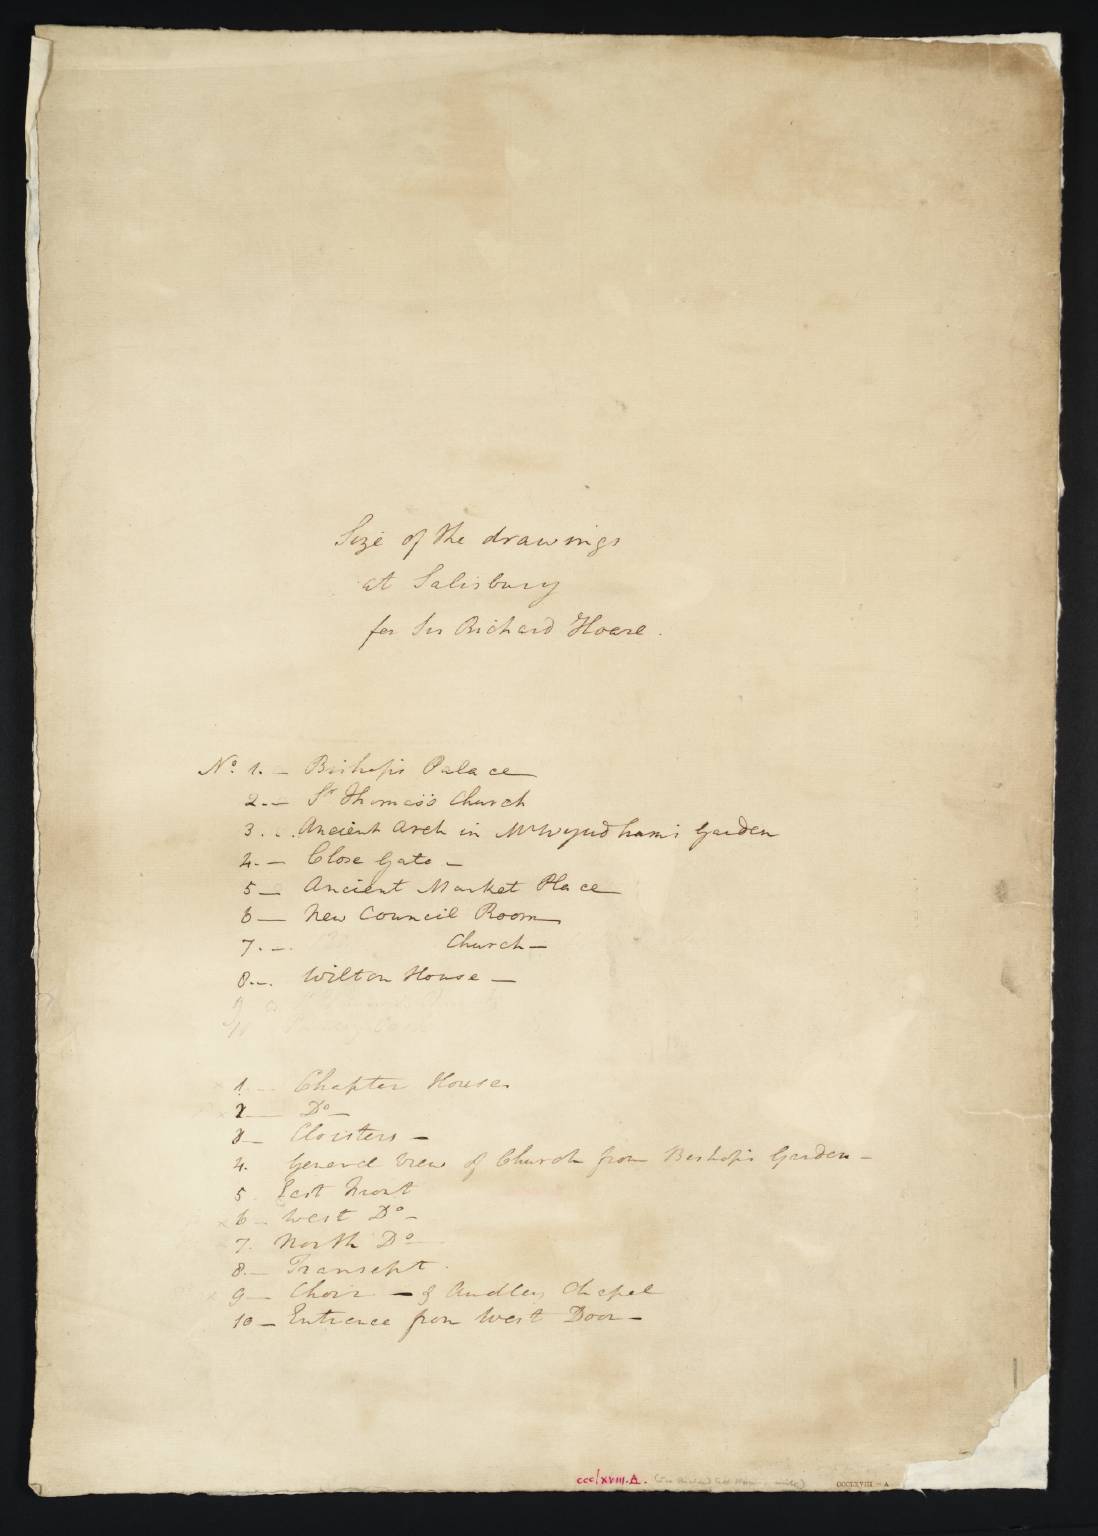 Size of the drawings
at Salisbury
for Sir Richard Hoare.
No. 1. — Bishops Palace
2. — St Thomas's Church
3. . . Ancient Arch in Mr Wyndham's Garden
4. — Close Gate —
5 — Ancient Market Place
6 — New Council Room
7. — Church —
8. — Wilton House —
9
1 — Chapter House
2 — Do —
3 — Cloisters —
4. General View of Church from Bishop's Garden —
5. East Front
6 — West Do —
7. North Do
8. — Transept.
9 — Choir — & Audley Chapel
10 — Entrance from West Door —
ccclxviii.A.
CCCLXVIII – A